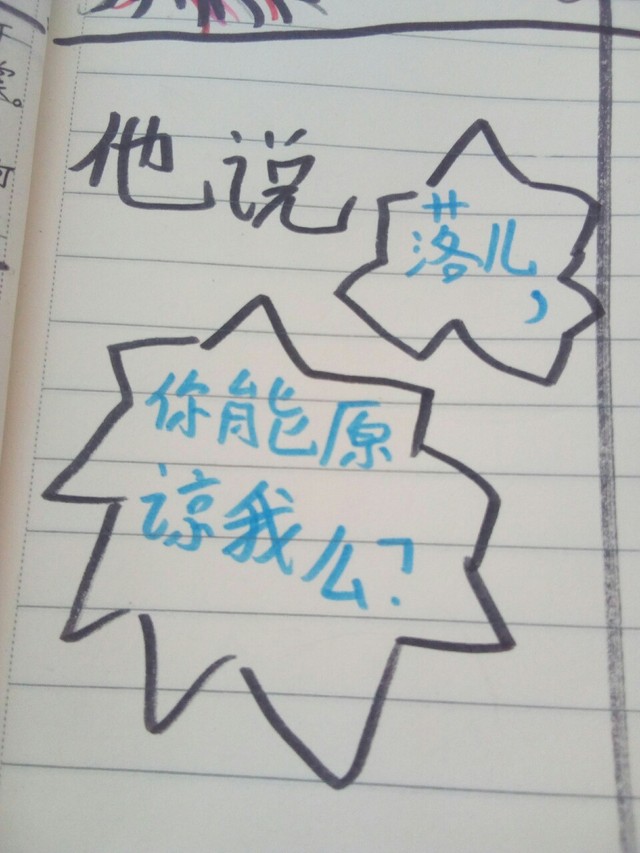 他说
落儿，
你能原
谅我么？